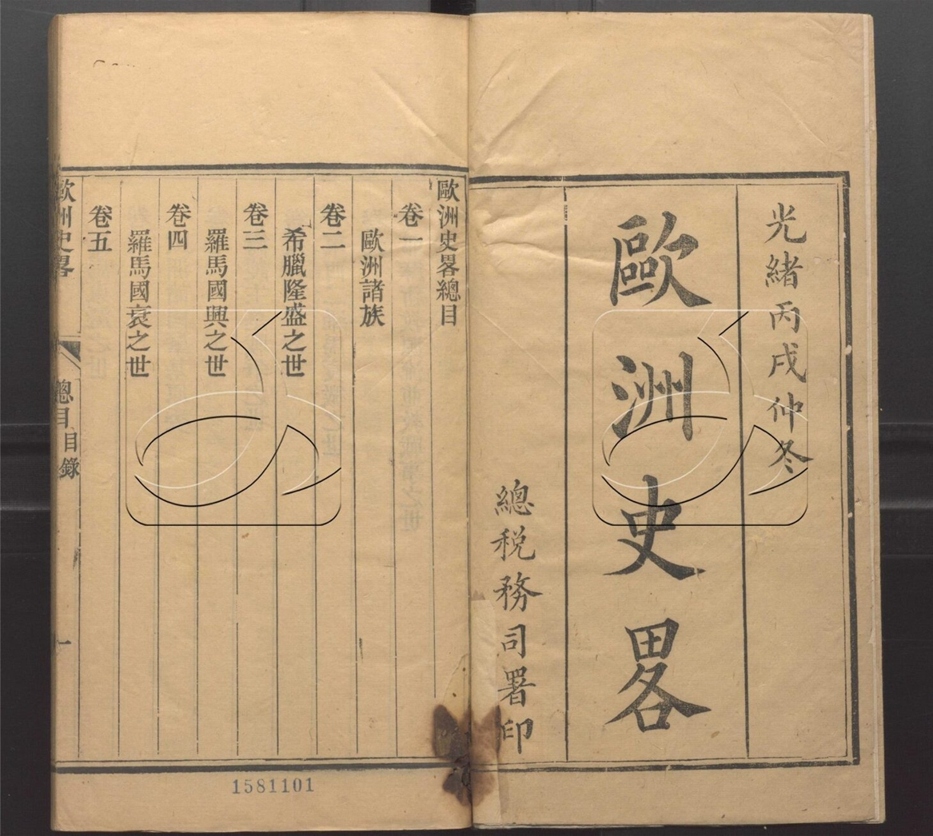 光緒丙戌仲冬
歐洲史畧
總稅務司署印
歐洲史畧總目
卷一
歐洲諸族
卷二
希臘隆盛之世
卷三
羅馬國興之世
卷四
羅馬國衰之世
卷五
歐洲史畧
總目目錄
一
1581101